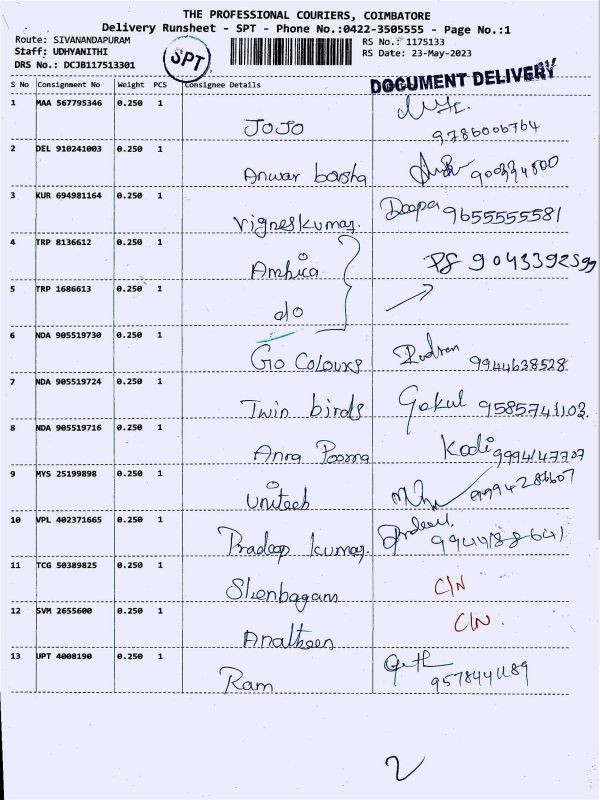 THE PROFESSIONAL COURIERS, COIMBATORE
Delivery Runsheet - SPT - Phone No.:0422-3505555 - Page No.:1
Route: SIVANANDAPURAM
Staff: UDHYANITHI
DRS No.: DCJB117513301
SPT
RS No.: 1175133
RS Date: 23-May-2023
DOCUMENT DELIVERY
S No Consignment No Weight PCS Consignee Details
1 MAA 567795346 0.250 1 JOJO 9786006764
2 DEL 910241003 0.250 1 Anwar barsha
3 KUR 694981164 0.250 1 Vigneskumar Deepa 9655555581
4 TRP 8136612 0.250 1 Ambica 9043392599
5 TRP 1686613 0.250 1 do
6 NDA 905519730 0.250 1 Go Colours Rudran 9944638528
7 NDA 905519724 0.250 1 Twin birds Gokul 9585741103
8 NDA 905519716 0.250 1 Anna Poorna Kodi 9994147707
9 MYS 25199898 0.250 1 Uniteeb 9994286607
10 VPL 402371665 0.250 1 Pradeep kumar 9944188641
11 TCG 50389825 0.250 1 Shenbagam C/N
12 SVM 2655600 0.250 1 C/N
13 UPT 4008190 0.250 1 Ram 9578441189
2